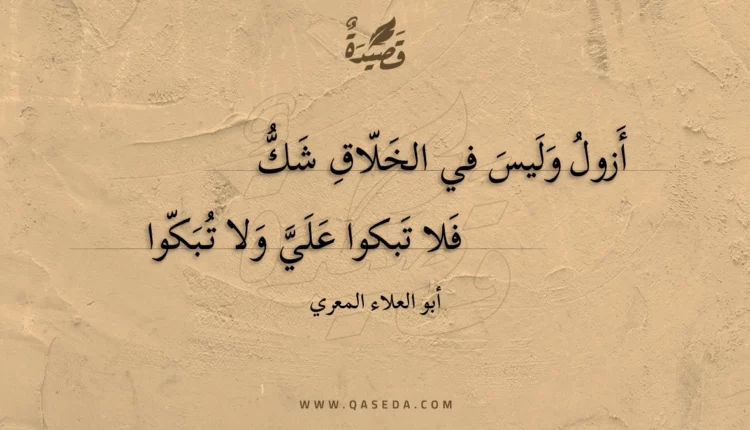 قَصِيْدَةٌ
أَزولُ وَلَيسَ في الخَلّاقِ شَكُّ
فَلا تَبكوا عَلَيَّ وَلا تُبَكّوا
أبو العلاء المعري
WWW.QASEDA.COM